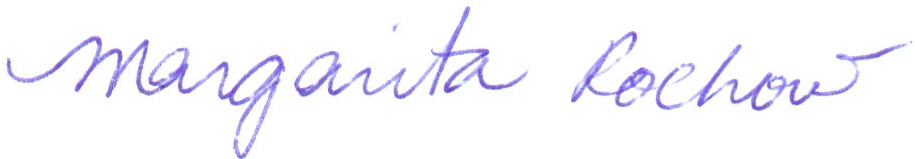 Margarita Rochow